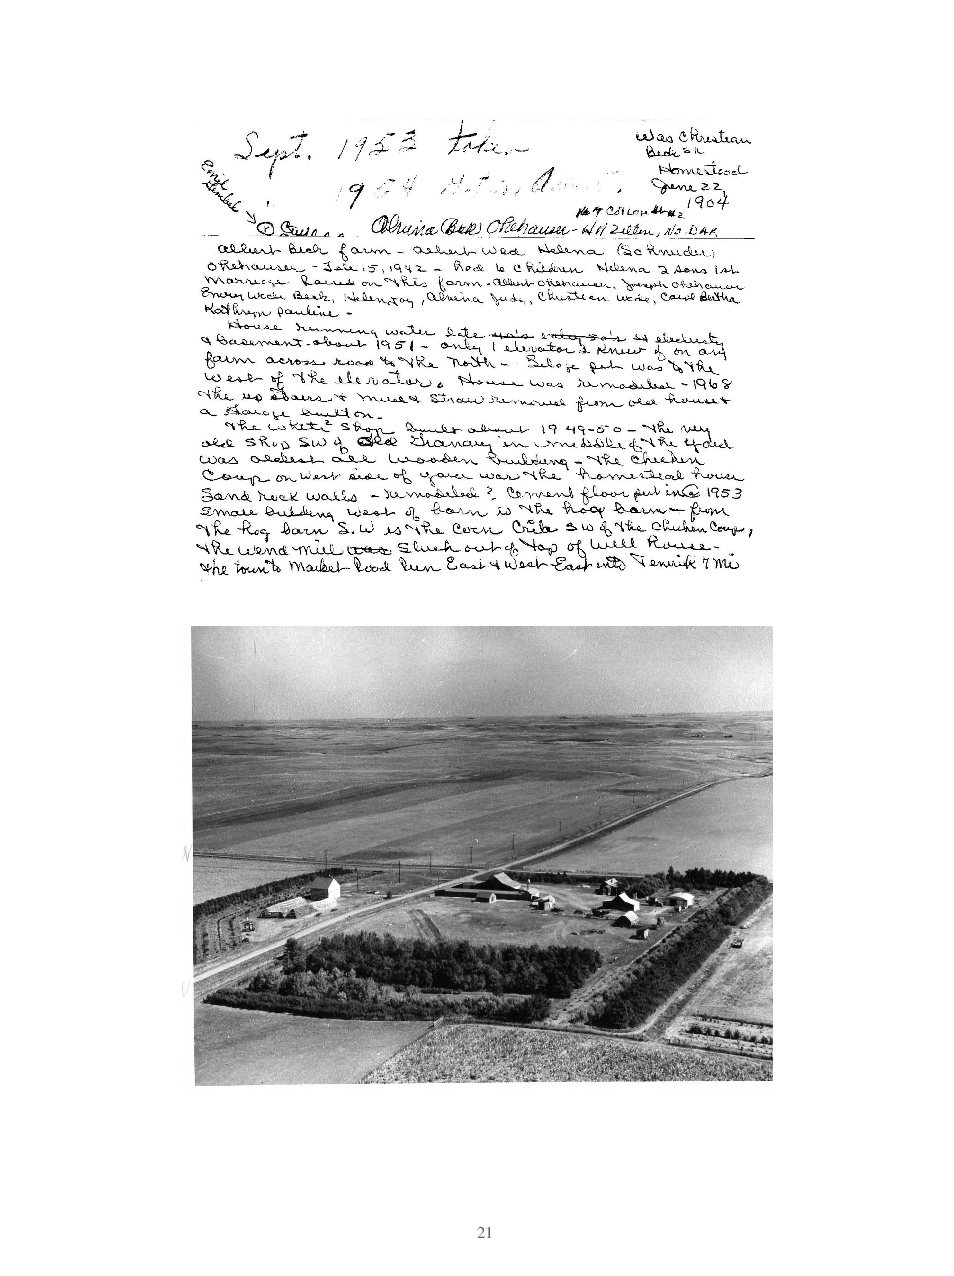 Sept. 1953 taken
1954
Was Christean
Beck SR
Homestead
June 22,
1904
Alvina Beck Ohlhauser - Hazelton, No. DAK
Albert Beck farm - albert wed Helena (Schneider)
Ohlhauser - 15, 1942 - had 6 children Helena 2 sons 1st
Marriage on this farm - albert ohlhauser, Joseph ohlhauser
Emery Wade Beck, Helen Joy, Alvina Judy, Christean Wade, Carol Bertha
Kathryn Pauline -
House running water late 40's early 50's electricity
& Basement - about 1951 - only 1 elevator I knew of on any
farm across road to the north - Silage pit was to the
West of the elevator. House was remodeled - 1968
the up stairs & mud & straw removed from old house &
a Garage built on.
The white? Shop built about 1949-50 - the very
old shop SW of old Granary in middle of the yard
was oldest all wooden building - the chicken
Coup on west side of yard was the homestead house
Sand rock walls - remodeled? Cement floor put in 1953
Small building west of barn is the hog barn - from
the hog barn S.W is the corn crib SW of the chicken Coup,
the wind mill was stuck out of top of well house -
the town to market Road Run East & West East into 7 Mi
21